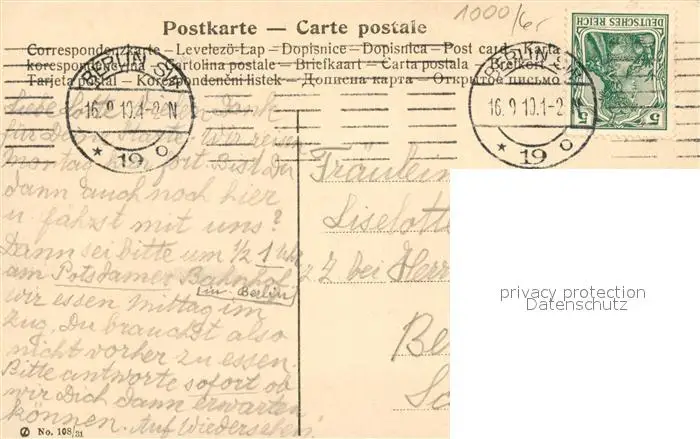 1000/6,-
Postkarte – Carte postale
Correspondenzkarte – Levelező-Lap – Dopisnice – Dopisnica – Post card – Karta
korespondencyjna Cartolina postale – Briefkaart – Carta postala – Brefkort
Tarjeta postal – Korespondenční listek – Дописна карта – Открытое письмо
DEUTSCHES REICH
5 5
BERLIN SW
16. 9 10.1-2 N
* 19 o
BERLIN SW
16. 9 10.1-2
* 19 o
Liebe Lotte! Vielen Dank
für Deine Karte. Wir reisen
Montag fort. Bist Du
dann auch noch hier
u. fährst mit uns?
Dann sei bitte um ½ 1 Uhr
am Potsdamer Bahnhof
(in Berlin)
wir essen Mittag im
Zug. Du brauchst also
nicht vorher zu essen.
Bitte antworte sofort ob
wir Dich dann erwarten
können. Auf Wiedersehen!
Fräulein
Liselotte
z. Z. bei Herr
Be
privacy protection
Datenschutz
No. 108/31